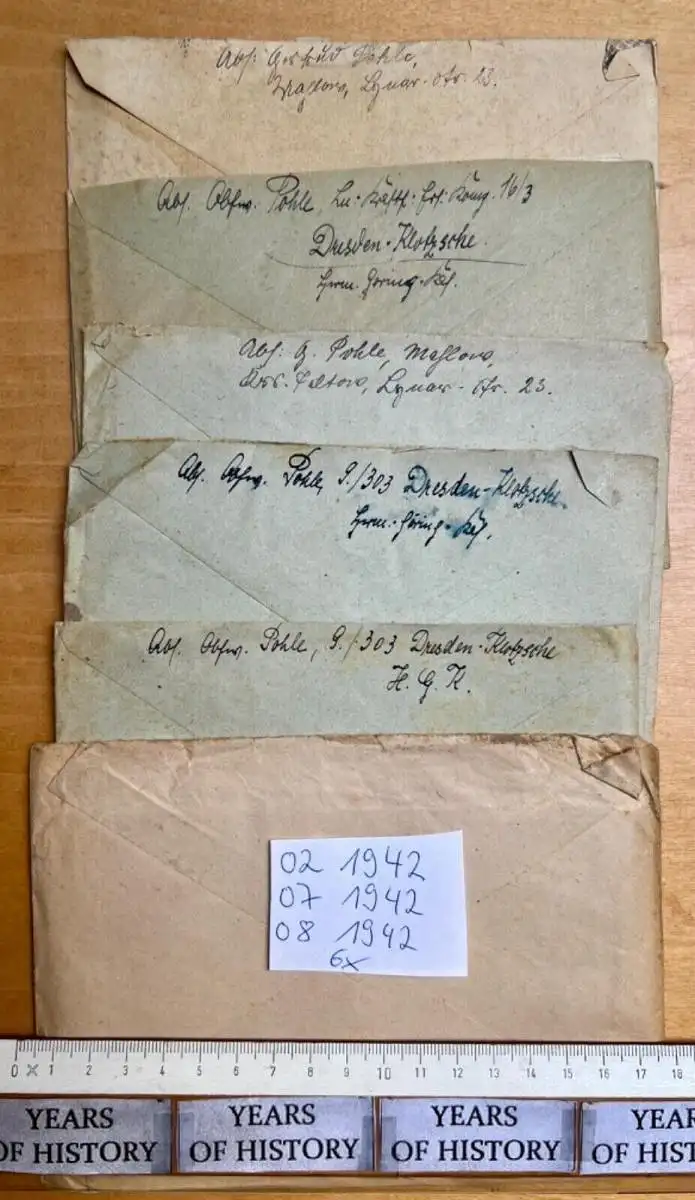 Abs: Gertrud Pohle,
Mahlow, Lynar-Str. 23.
Abs. Obfw. Pohle, Ln.-Kraftf.-Ers. Komp. 16/3
Dresden-Klotzsche.
Herm. Göring-Kas.
Abs: G. Pohle, Mahlow,
Krs. Teltow, Lynar-Str. 23.
Abs. Obfw. Pohle, 9./303 Dresden-Klotzsche.
Herm.-Göring-Kas.
Abs. Obfw. Pohle, 9./303 Dresden-Klotzsche
H. G. K.
02 1942
07 1942
08 1942
6x
0 1 2 3 4 5 6 7 8 9 10 11 12 13 14 15 16 17 18
YEARS OF HISTORY YEARS OF HISTORY YEARS OF HISTORY YEAR OF HIST